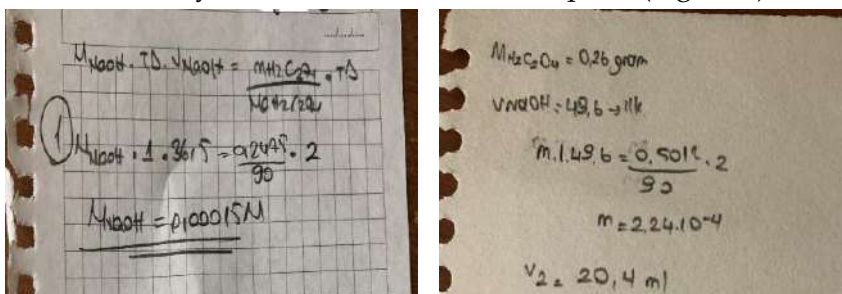 M NaOH . TD . V NaOH = mH2C2O4 / MaH2C2O4 . TD
1
M NaOH . 1 . 36,5 = 0,2475 / 90 . 2
M NaOH = 0,00015M
MH2C2O4 = 0,26 gram
VNaOH = 49,6 → ilk
m.1.49,6 = 0,5012 / 90 . 2
m = 2,24.10-4
V2 = 20,4 ml